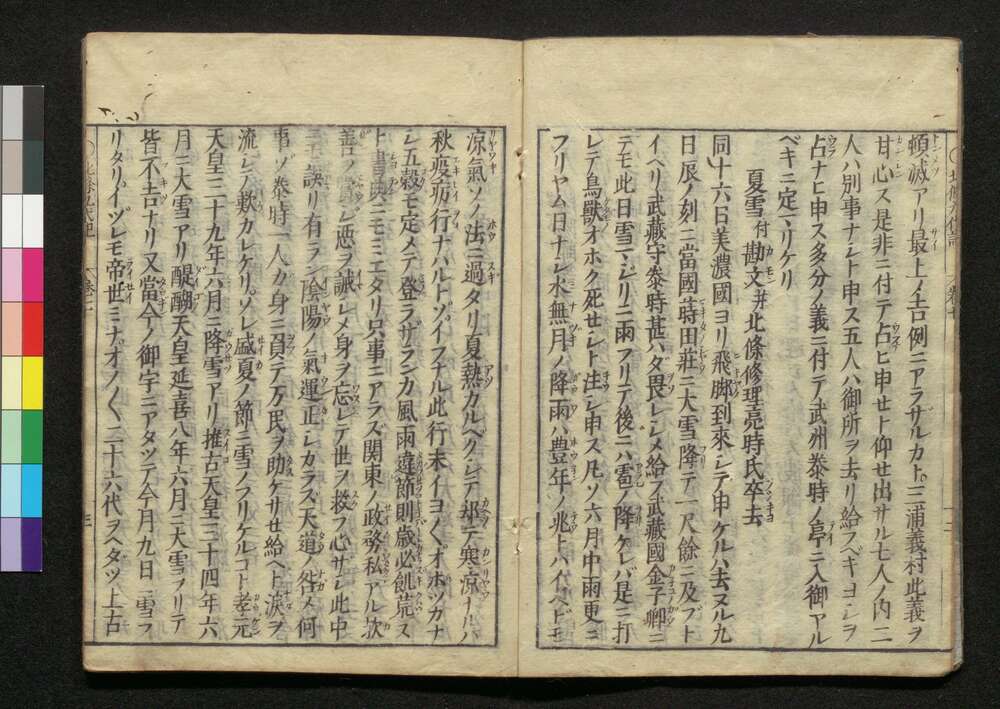 頓滅アリ最上ノ吉例ニアラザルカト三浦義村此義ヲ
甘心ス是非ニ付テ占ヒ申セト仰セ出サル七人ノ内二
人ハ別事ナシト申ス五人ハ御所ヲ去リ給フベキヨシヲ
占ナヒ申ス多分ノ義ニ付テ武州泰時ノ亭ニ入御アル
ベキニ定マリケリ
夏雪付勘文并北條修理亮時氏卒去
同十六日美濃國ヨリ飛脚到來シテ申ケルハ去ヌル九
日辰ノ刻ニ當國蒔田莊ニ大雪降テ一尺餘ニ及ブト
イヘリ武藏守泰時甚ハタ畏レシメ給フ武藏國金子卿ニ
テモ此日雪マジリニ雨フリテ後ニハ雹ノ降ケレバ是ニ打
レテ鳥獸オホク死セシト注シ申ス凡ソ六月中雨更ニ
フリヤム日ナシ水無月ノ降雨ハ豊年ノ兆トハイヘドモ
涼氣ソノ法ニ過タリ夏熱カルベクシテ却テ寒涼ナルハ
秋疫疠行ナハルトゾイフナル此行末イヨ〱オホツカナ
シ五穀モ定メテ登ラザランカ風雨違節則歳必飢荒ス
ト書典ニモミエタリ只事ニアラズ関東ノ政務私アル歟
善ヲ賞シ悪ヲ誡シメ身ヲ忘レテ世ヲ救フ心サシ此中
ニモ誤リ有ラン陰陽ノ氣運正シカラス天道ノ咎メ何
事ゾ泰時一人カ身ニ負テ万民ヲ助ケサセ給ヘト淚ヲ
流シテ歎カレケリソレ盛夏ノ節ニ雪ノフリケルコト孝元
天皇三十九年六月ニ降雪アリ推古天皇三十四年六
月ニ大雪アリ醍醐天皇延喜八年六月ニ大雪フリテ
皆不吉ナリ又當今ノ御宇ニアタツテ今月九日ニ雪フ
リタリイヅレモ帝世ミナオノ〱二十六代ヲヘダツ上古